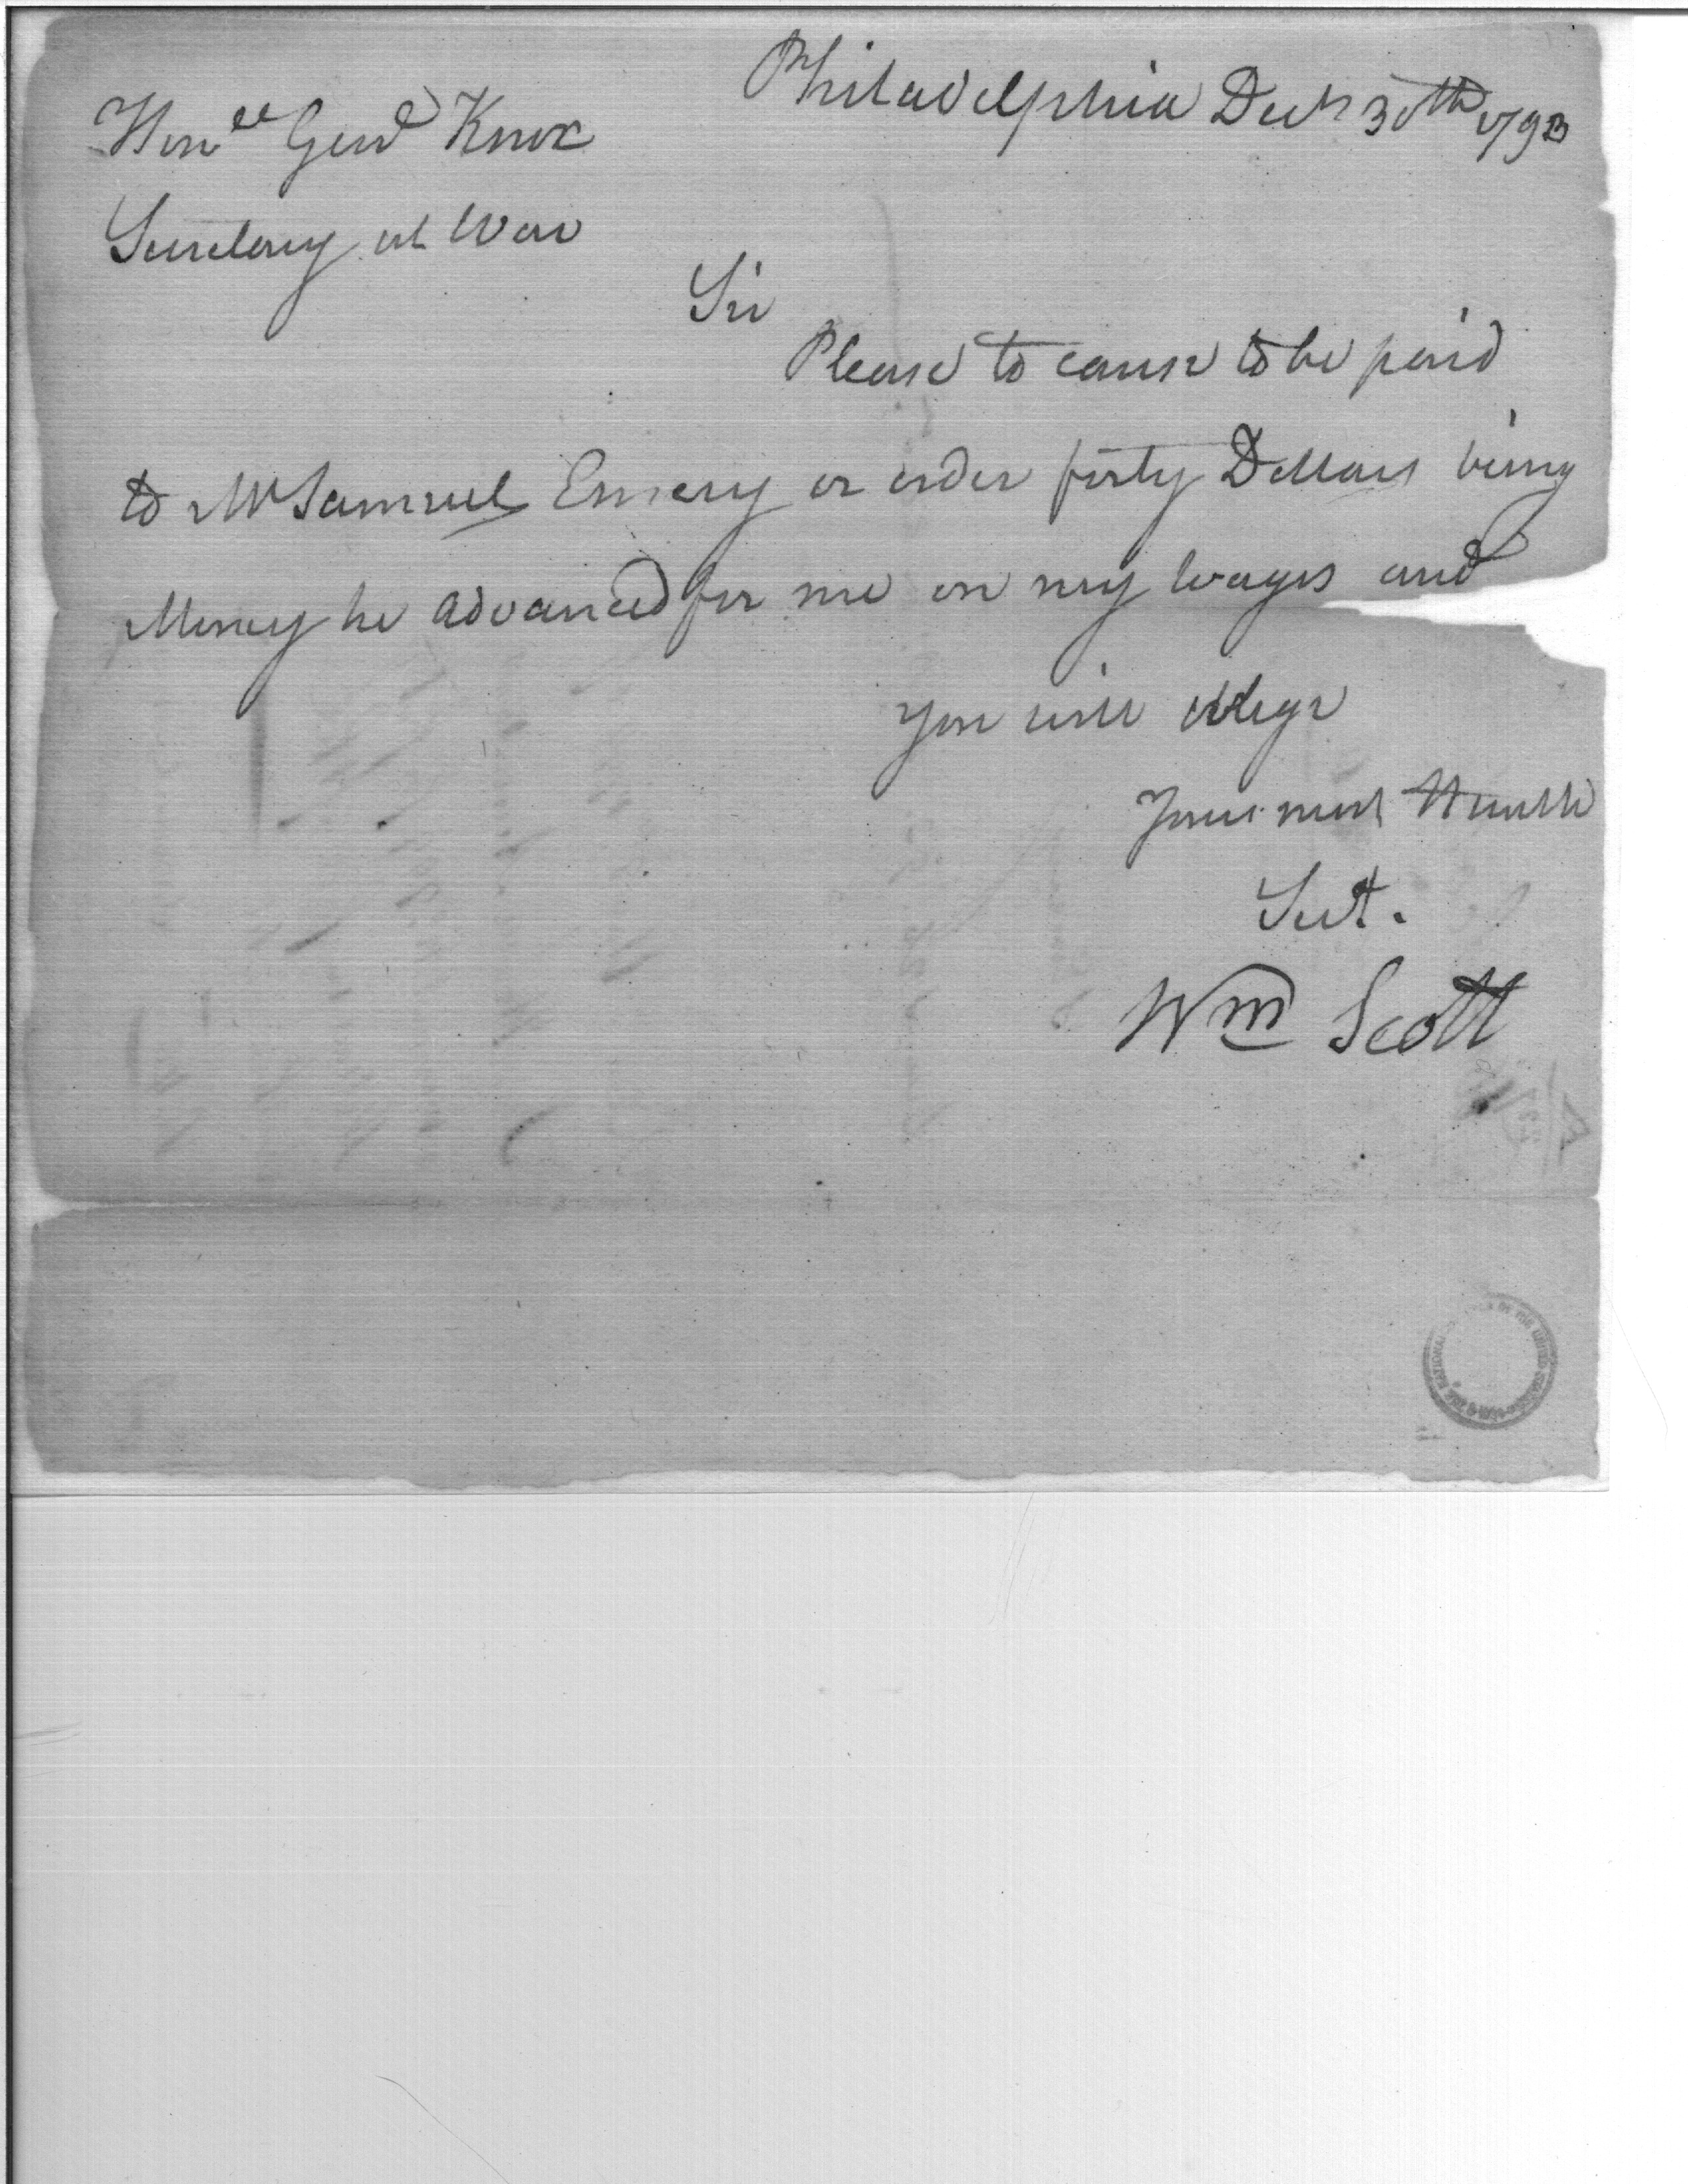 Philadelphia Decr 30th 1793
Honble Genl Knox
Secretary at War
Sir
Please to cause to be paid
to Mr Samuel Emery or order forty Dollars being
Money he advanced for me on my wages and
you will oblige
Your most Humble
Sert.
Wm Scott